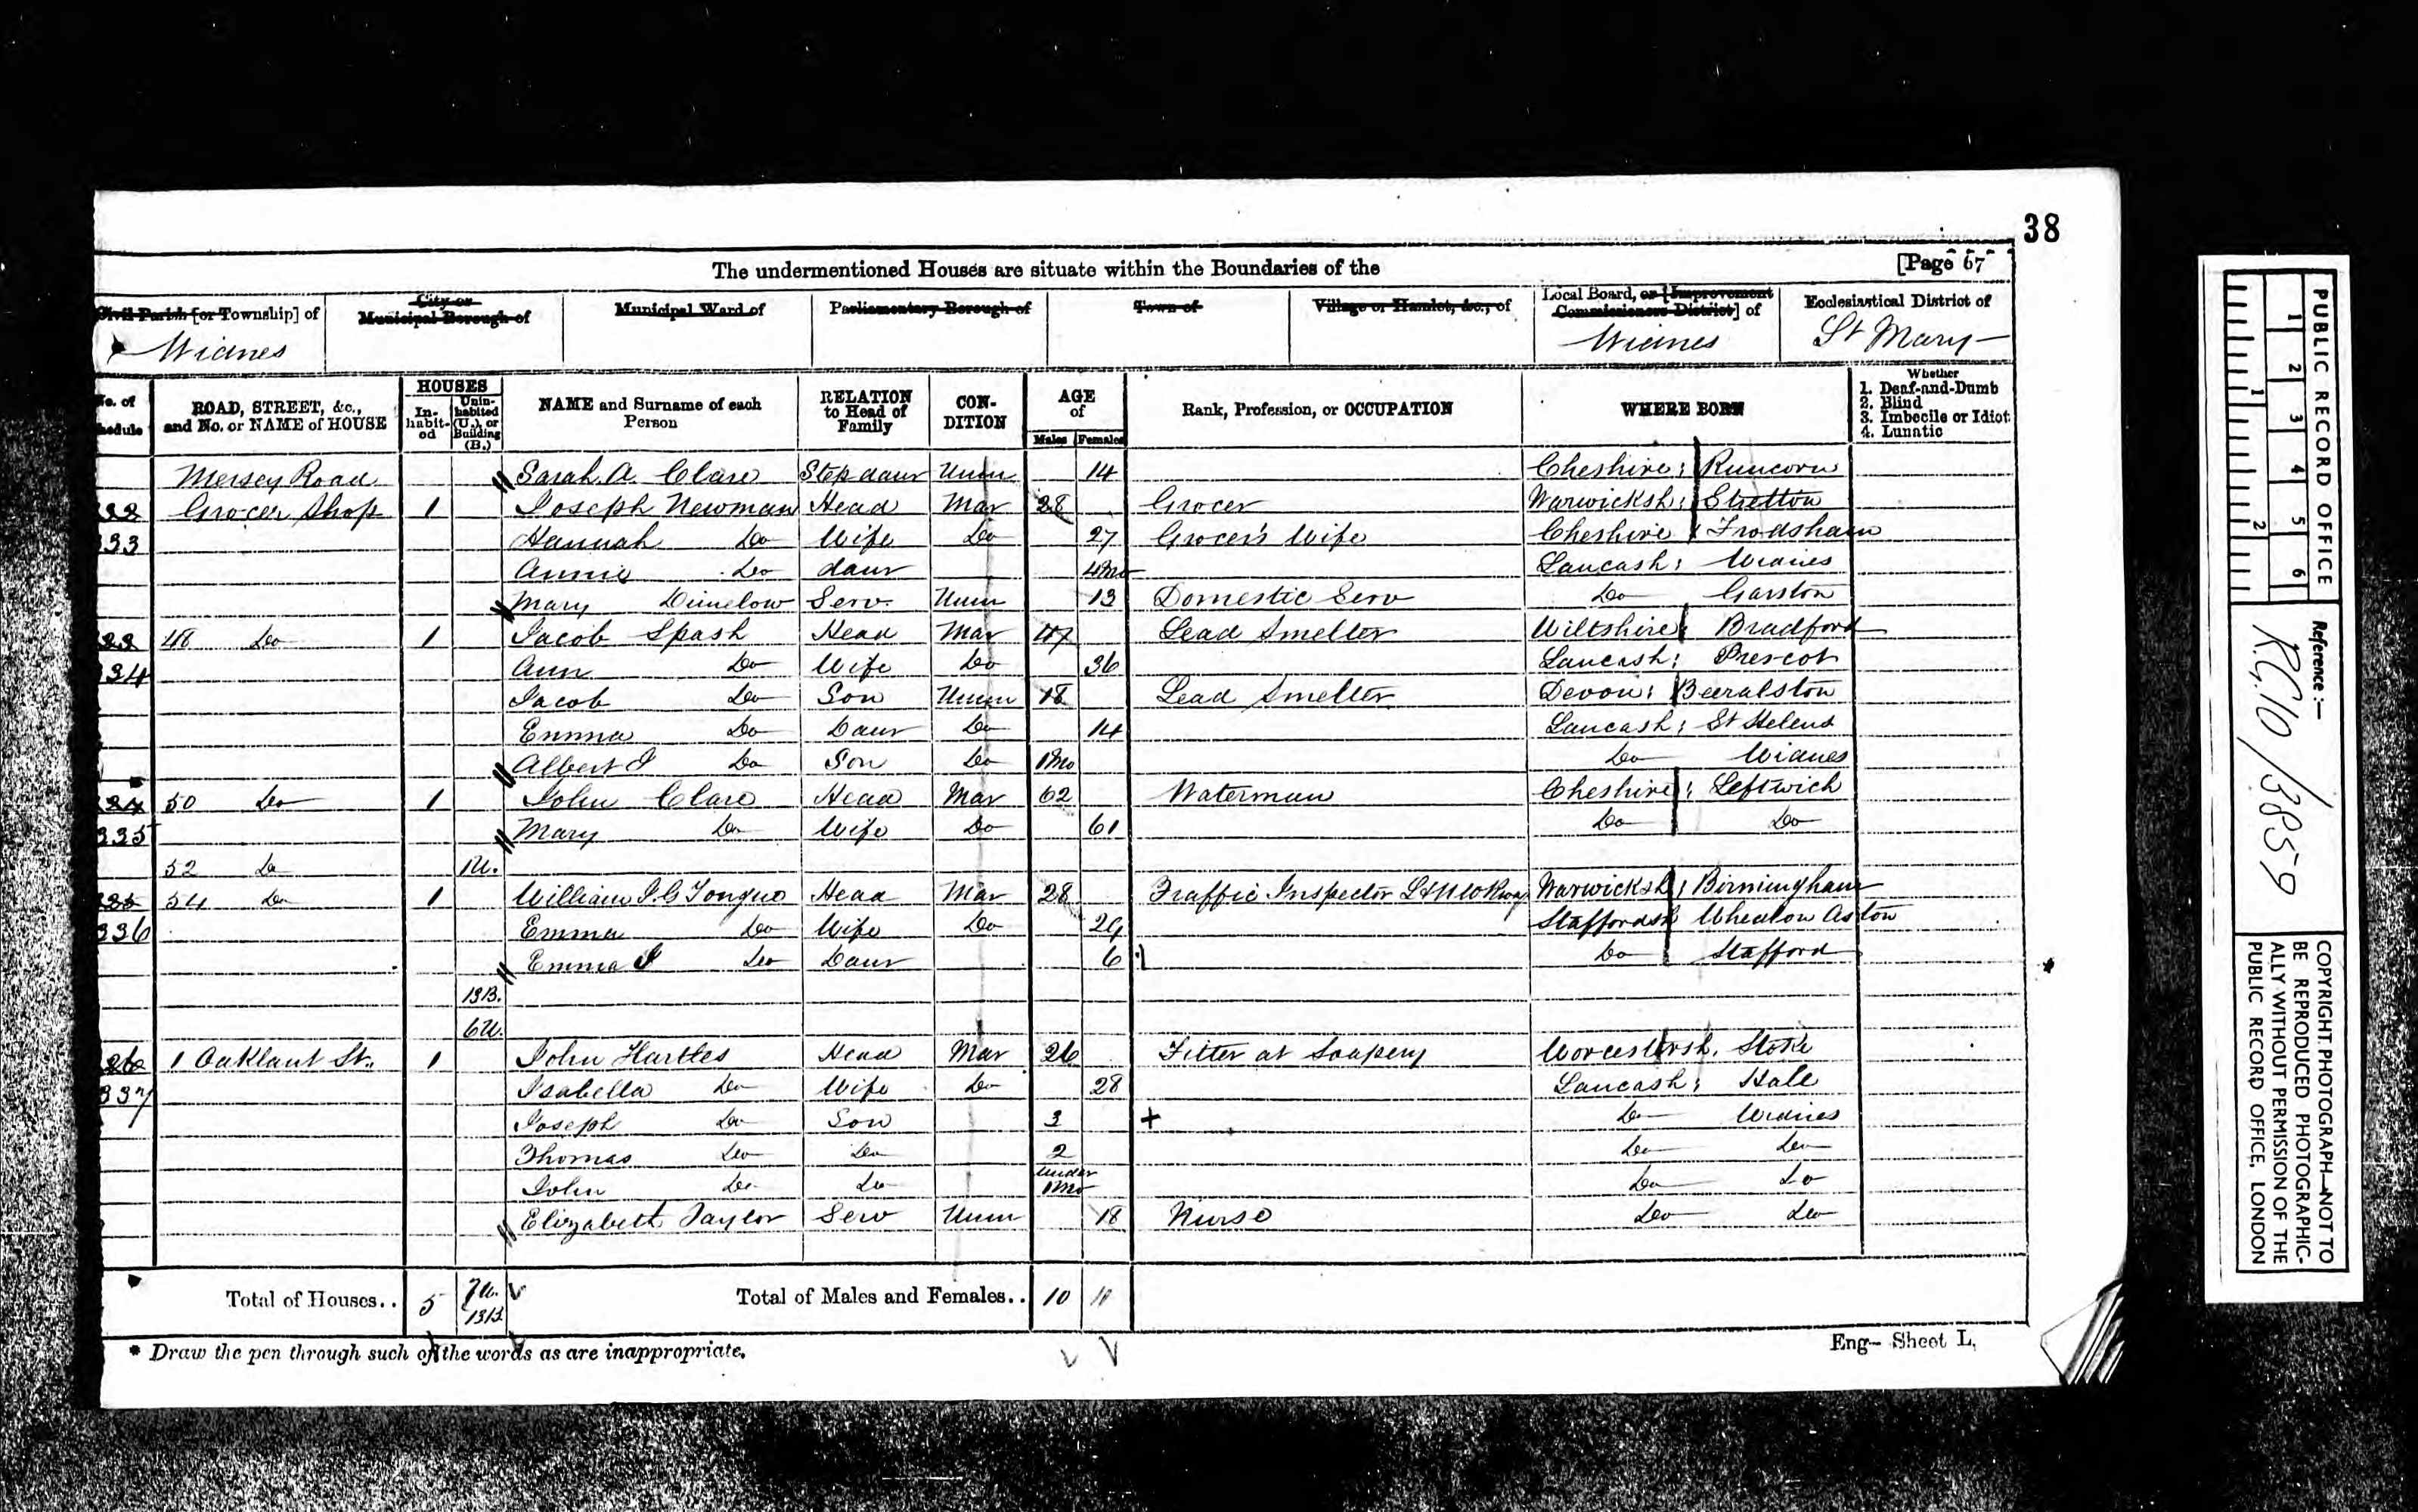 38
The undermentioned Houses are situate within the Boundaries of the [Page 67
Civil Parish [or Township] of City or Municipal Borough of Municipal Ward of Parliamentary Borough of Town of Village or Hamlet, &c., of Local Board, or [Improvement Commissioners District] of Ecclesiastical District of
Widnes Widnes St Mary
No. of Schedule ROAD, STREET, &c., and No. or NAME of HOUSE HOUSES In-habit-ed Unin-habited (U.), or Building (B.) NAME and Surname of each Person RELATION to Head of Family CON-DITION AGE of Males Females Rank, Profession, or OCCUPATION WHERE BORN Whether 1. Deaf-and-Dumb 2. Blind 3. Imbecile or Idiot 4. Lunatic
Mersey Road Sarah A. Clare Stepdaur Unm 14 Cheshire; Runcorn
Grocer Shop 1 Joseph Newman Head Mar 28 Grocer Warwicksh; Stretton
333 Hannah Do Wife Do 27 Grocer's Wife Cheshire Frodsham
Annie Do daur 4Mo Lancash; Widnes
Mary Dimelow Serv. Unm 13 Domestic Serv Do Garston
48 Do 1 Jacob Spash Head Mar 47 Lead Smelter Wiltshire; Bradford
334 Ann Do Wife Do 36 Lancash; Prescot
Jacob Do Son Unm 18 Lead Smelter Devon; Beeralston
Emma Do Daur Do 14 Lancash; St Helens
Albert J Do Son Do 1Mo Do Widnes
50 Do 1 John Clare Head Mar 62 Waterman Cheshire; Leftwich
335 Mary Do Wife Do 61 Do Do
52 Do 1U.
54 Do 1 William J.G Tongue Head Mar 28 Traffic Inspector L&NW Rway Warwicksh; Birmingham
336 Emma Do Wife Do 29 Staffordsh Wheaton Aston
Emma J Do Daur 6 Do Stafford
13B.
6U.
1 Oaklant St. 1 John Hartles Head Mar 26 Fitter at Soapery Worcestersh. Stoke
337 Isabella Do Wife Do 28 Lancash; Hale
Joseph Do Son 3 + Do Widnes
Thomas Do Do 2 Do Do
John Do Do under 1Mo Do Do
Elizabeth Taylor Serv Unm 18 Nurse Do Do
Total of Houses.. 5 7U. 13B. Total of Males and Females.. 10 11
* Draw the pen through such of the words as are inappropriate.
Eng— Sheet L.
PUBLIC RECORD OFFICE
1 2 3 4 5 6
1 2
Reference :—
R.G.10/3859
COPYRIGHT PHOTOGRAPH—NOT TO
BE REPRODUCED PHOTOGRAPHIC-
ALLY WITHOUT PERMISSION OF THE
PUBLIC RECORD OFFICE, LONDON